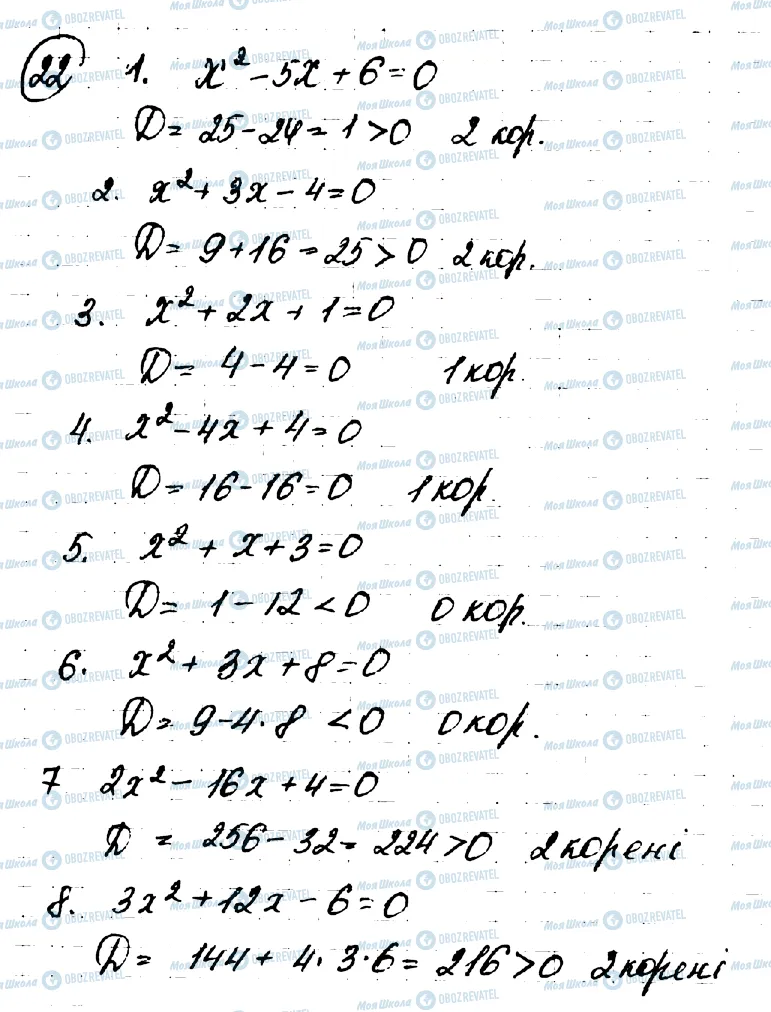 22 1. x² - 5x + 6 = 0
D = 25 - 24 = 1 > 0 2 кор.
2. x² + 3x - 4 = 0
D = 9 + 16 = 25 > 0 2 кор.
3. x² + 2x + 1 = 0
D = 4 - 4 = 0 1 кор.
4. x² - 4x + 4 = 0
D = 16 - 16 = 0 1 кор.
5. x² + x + 3 = 0
D = 1 - 12 < 0 0 кор.
6. x² + 3x + 8 = 0
D = 9 - 4 · 8 < 0 0 кор.
7 2x² - 16x + 4 = 0
D = 256 - 32 = 224 > 0 2 корені
8. 3x² + 12x - 6 = 0
D = 144 + 4 · 3 · 6 = 216 > 0 2 корені